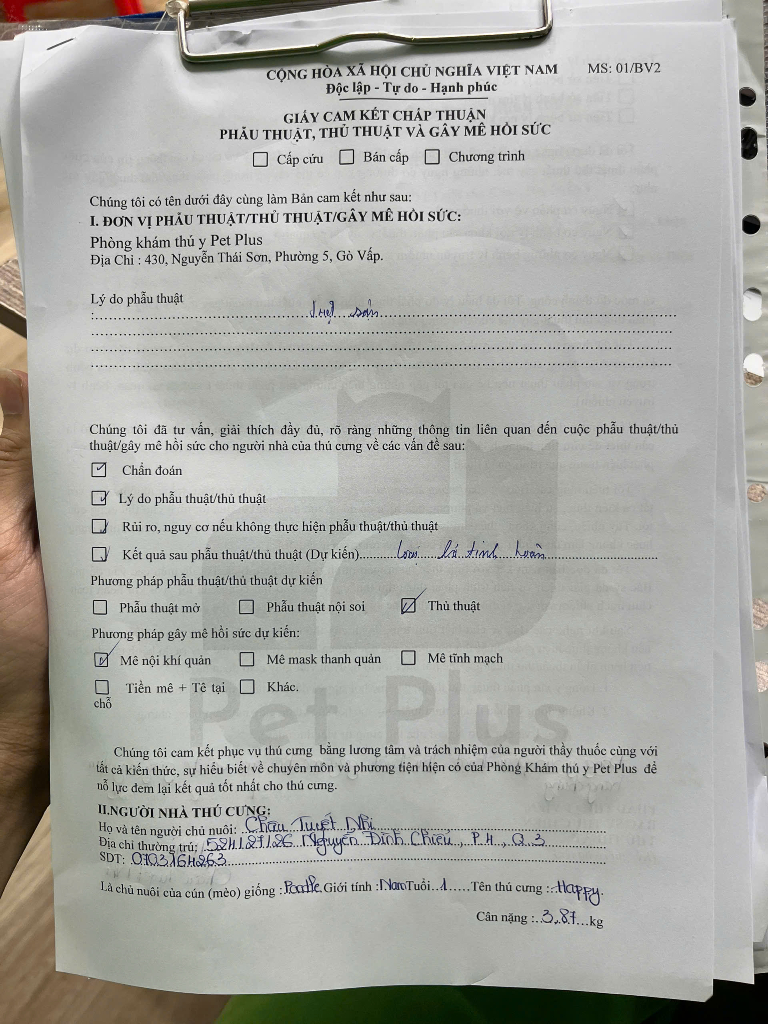 CỘNG HÒA XÃ HỘI CHỦ NGHĨA VIỆT NAM MS: 01/BV2
Độc lập - Tự do - Hạnh phúc
GIẤY CAM KẾT CHẤP THUẬN
PHẪU THUẬT, THỦ THUẬT VÀ GÂY MÊ HỒI SỨC
Cấp cứu Bán cấp Chương trình
Chúng tôi có tên dưới đây cùng làm Bản cam kết như sau:
I. ĐƠN VỊ PHẪU THUẬT/THỦ THUẬT/GÂY MÊ HỒI SỨC:
Phòng khám thú y Pet Plus
Địa Chỉ : 430, Nguyễn Thái Sơn, Phường 5, Gò Vấp.
Lý do phẫu thuật
: triệt sản
Chúng tôi đã tư vấn, giải thích đầy đủ, rõ ràng những thông tin liên quan đến cuộc phẫu thuật/thủ
thuật/gây mê hồi sức cho người nhà của thú cưng về các vấn đề sau:
Chẩn đoán
Lý do phẫu thuật/thủ thuật
Rủi ro, nguy cơ nếu không thực hiện phẫu thuật/thủ thuật
Kết quả sau phẫu thuật/thủ thuật (Dự kiến) loại bỏ tinh hoàn
Phương pháp phẫu thuật/thủ thuật dự kiến
Phẫu thuật mở Phẫu thuật nội soi Thủ thuật
Phương pháp gây mê hồi sức dự kiến:
Mê nội khí quản Mê mask thanh quản Mê tĩnh mạch
Tiền mê + Tê tại Khác.
chỗ
Pet Plus
Chúng tôi cam kết phục vụ thú cưng bằng lương tâm và trách nhiệm của người thầy thuốc cùng với
tất cả kiến thức, sự hiểu biết về chuyên môn và phương tiện hiện có của Phòng Khám thú y Pet Plus để
nỗ lực đem lại kết quả tốt nhất cho thú cưng.
II.NGƯỜI NHÀ THÚ CƯNG:
Họ và tên người chủ nuôi: Châu Tuyết Nhi
Địa chỉ thường trú: 524/27/26 Nguyễn Đình Chiểu, P.4, Q.3
SDT: 0703164263
Là chủ nuôi của cún (mèo) giống : Poodle Giới tính : Nam Tuổi 1 Tên thú cưng : Happy.
Cân nặng : 3.87 kg